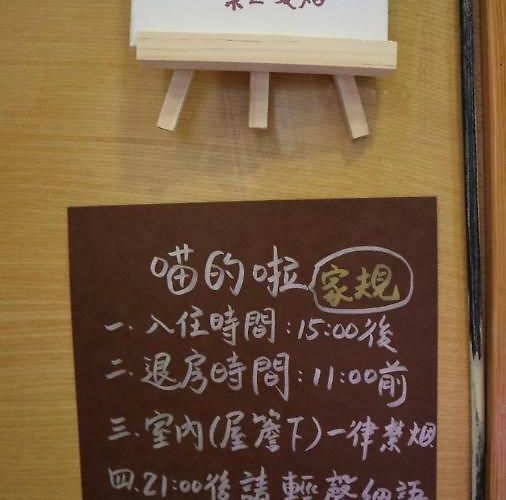 喵的啦 家規
一、入住時間:15:00後
二、退房時間:11:00前
三、室內(屋簷下)一律禁煙
四、21:00後請輕聲細語